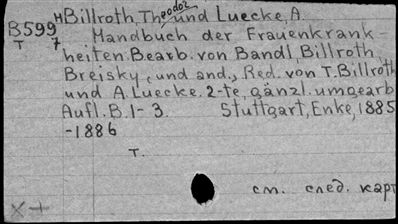 H Billroth, Theodor und Luecke, A.
B599
T 7
Handbuch der Frauenkrank-
heiten. Bearb. von Bandl, Billroth,
Breisky, und and., Red. von T. Billroth
und A. Luecke. 2-te, gänzl. umgearb.
Aufl. B. 1-3. Stuttgart, Enke, 1885
-1886
T.
см. след. карт
X+